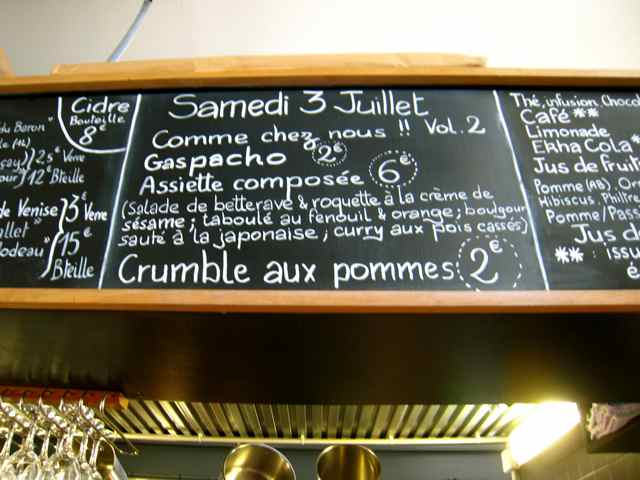 du Baron"
25€ Verre
12€ Bteille
de Venise
3€ Verre
15€
Bteille
Cidre
Bouteille
8€
Samedi 3 Juillet
Comme chez nous !! Vol. 2
Gaspacho 2€
Assiette composée 6€
(Salade de betterave & roquette à la crème de
sésame ; taboulé au fenouil & orange ; boulgour
sauté à la japonaise ; curry aux pois cassés)
Crumble aux pommes 2€
Thé, infusion, Choco
Café **
Limonade
Ekha Cola *
Jus de fruit
Pomme (AB), Ora
Hibiscus,
Pomme/Pass
Jus d
** : issu